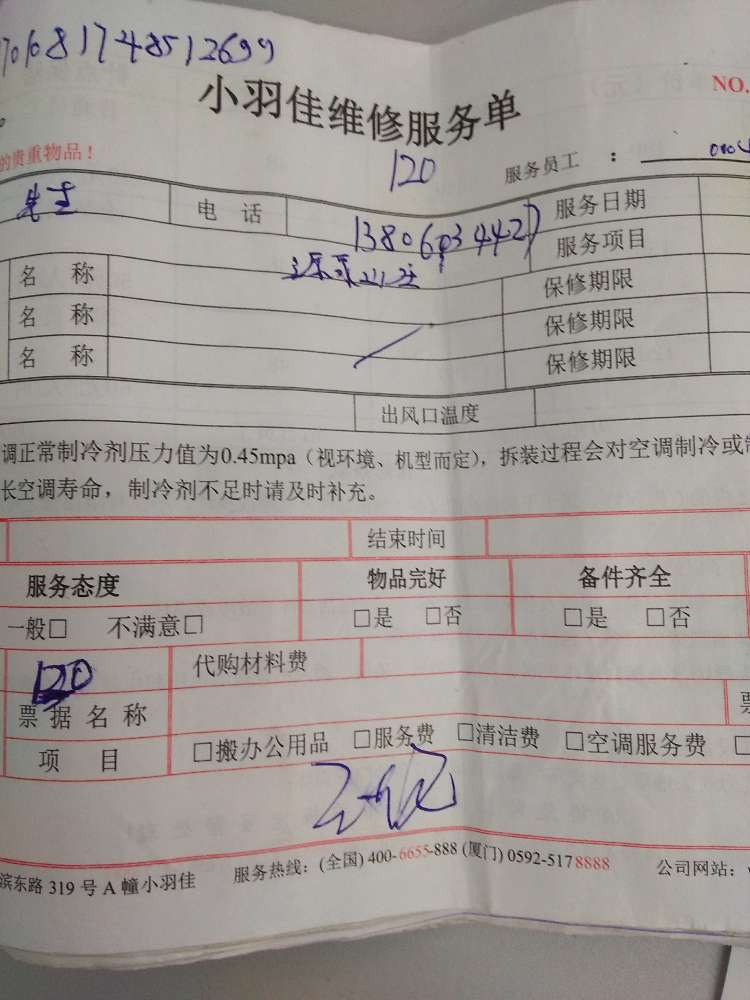 小羽佳维修服务单
NO.
的贵重物品！
120
服务员工 ：
先生 电 话 服务日期
服务项目
名 称 保修期限
名 称 保修期限
名 称 保修期限
出风口温度
调正常制冷剂压力值为0.45mpa（视环境、机型而定），拆装过程会对空调制冷或制
长空调寿命，制冷剂不足时请及时补充。
结束时间
服务态度 物品完好 备件齐全
一般□ 不满意□ □是 □否 □是 □否
120 代购材料费
票据名称 票
项 目 □搬办公用品 □服务费 □清洁费 □空调服务费 □
滨东路 319 号 A 幢小羽佳 服务热线：(全国) 400-6655-888 (厦门) 0592-5178888 公司网站：